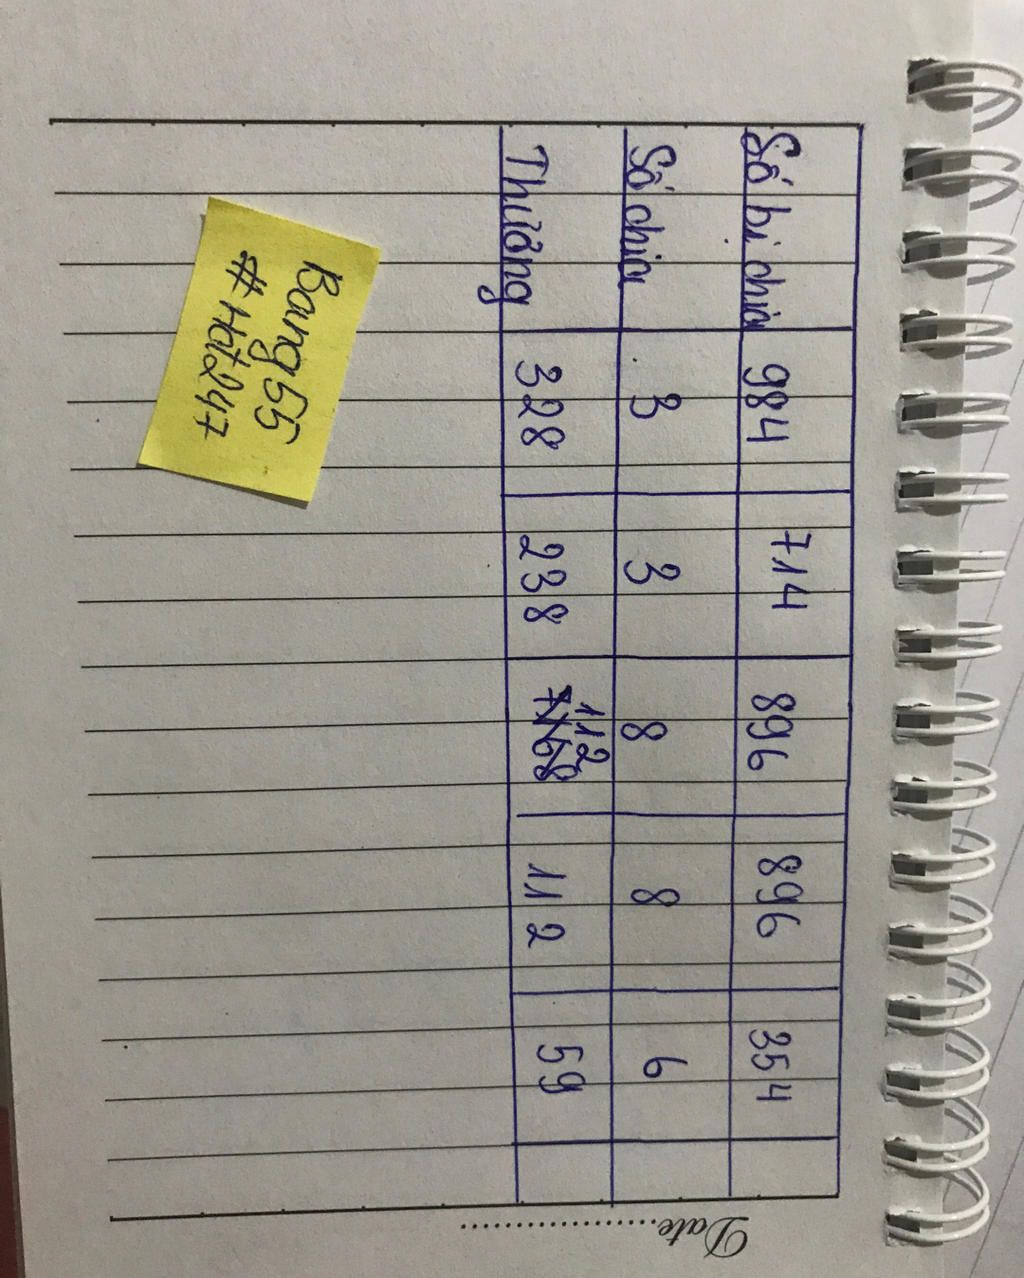 Date
Số bị chia 984 714 896 896 354
Số chia 3 3 8 8 6
112
Thương 328 238 7168 112 59
Bang 55
#Hot247